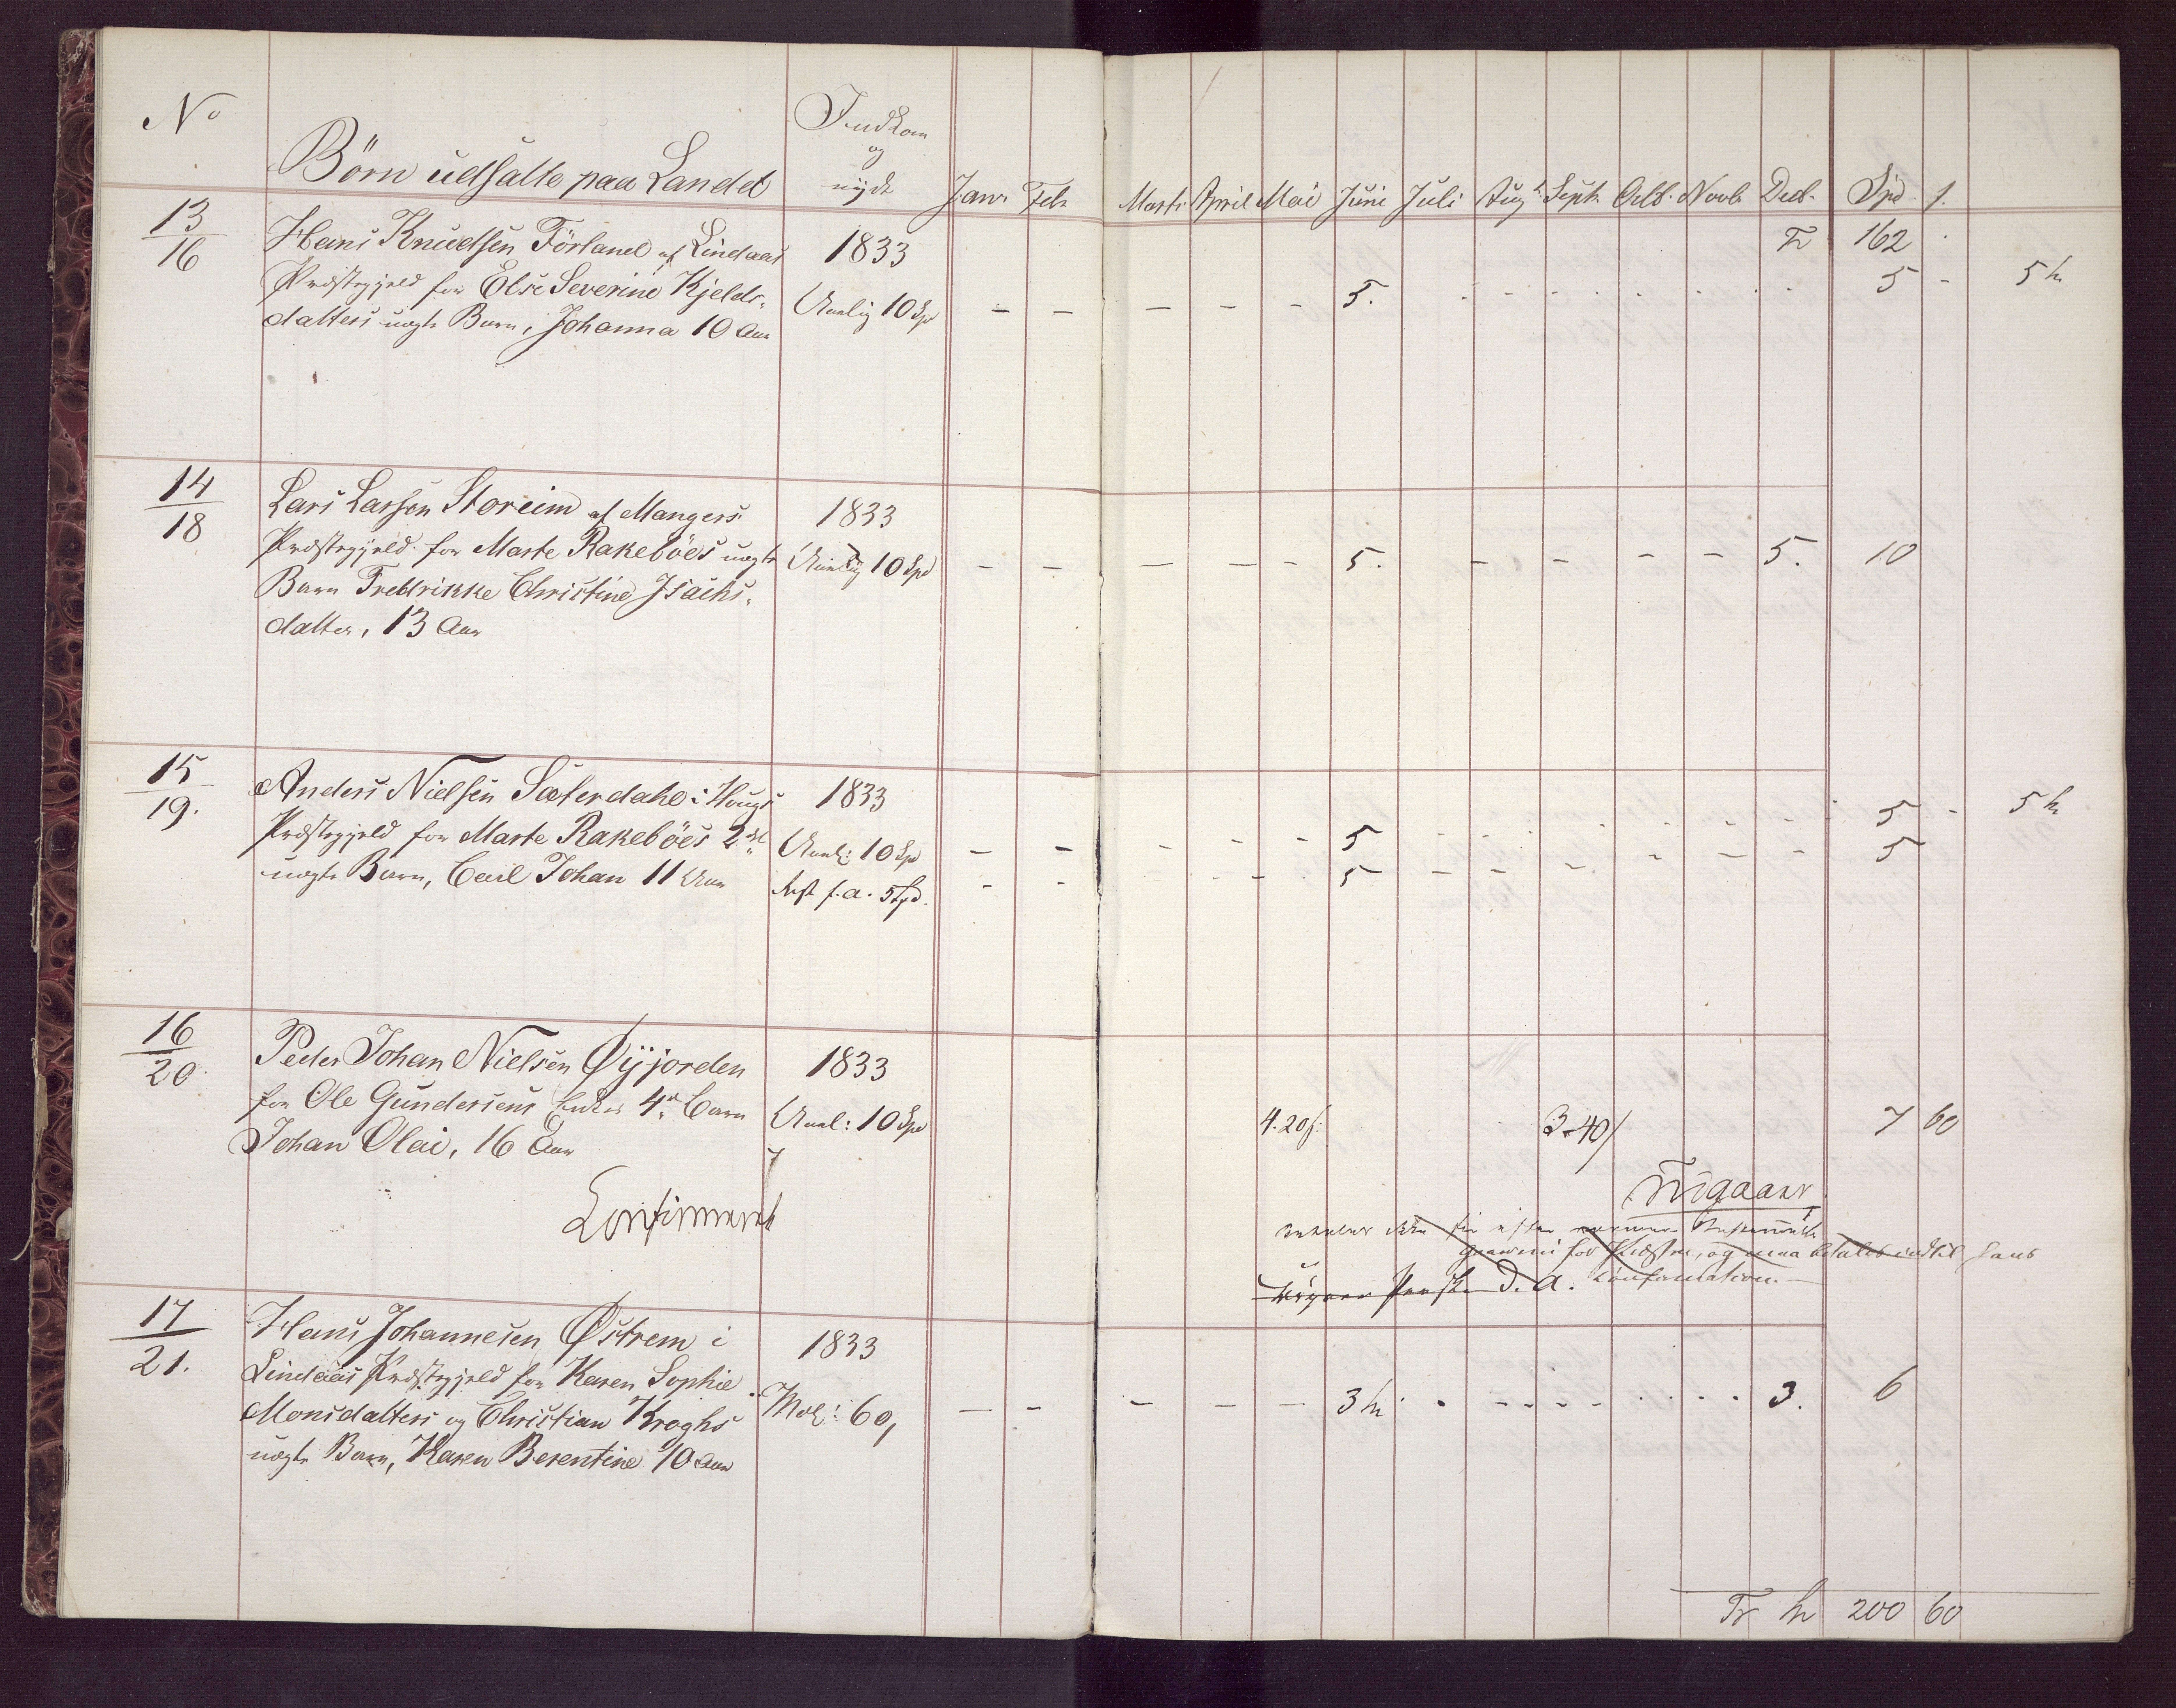 No
Börn udsatte paa Landet
Indkom
og
nÿde
Janr. Feb.
Marts April Mai Juni Juli Augt. Septr. Octb. Novb. Decb. Spd s.
Tr 162
13/16
Hans Knudsen Förland af Lindaas
Præstegjeld for Else Severine Kjelds-
datters uægte Barn, Johanna 10 Aar
1833
Aarlig 10 Spd
— — — — — 5. 5 - 5
14/18
Lars Larsen Storeim af Mangers
Præstegjeld for Marte Rakeböes uægte
Barn Fredrikke Christine Isachs-
datter, 13 Aar
1833
Aarlig 10 Spd
— — — — — 5. — — — — 5. 10
15/19.
Anders Nielsen Sæterdahl i Hougs
Præstegjeld for Marte Rakeböes 2det
uægte Barn, Carl Johan 11 Aar
1833
Aarl: 10 Spd
Rest f. a. 5 Spd.
— — — — — 5 5 - 5
— — — — 5 — — — — — — 5
16/20
Peder Johan Nielsen Øÿjorden
for Ole Gundersens Enkes 4de Barn
Johan Olai, 16 Aar
1833
Aarl: 10 Spd
4. 20 s: 3-40/ 7 60
Confirmeret
Frigaaer
og maa betales indtil hans
D. A. Confirmation.—
17/21.
Hans Johannesen Østrem i
Lindaas Præstegjeld for Karen Sophie
Monsdatters og Christian Kroghs
uægte Barn, Karen Berentine 10 Aar
1833
Mdl: 60,
— — — — — 3 3. 6
Tr 200 60